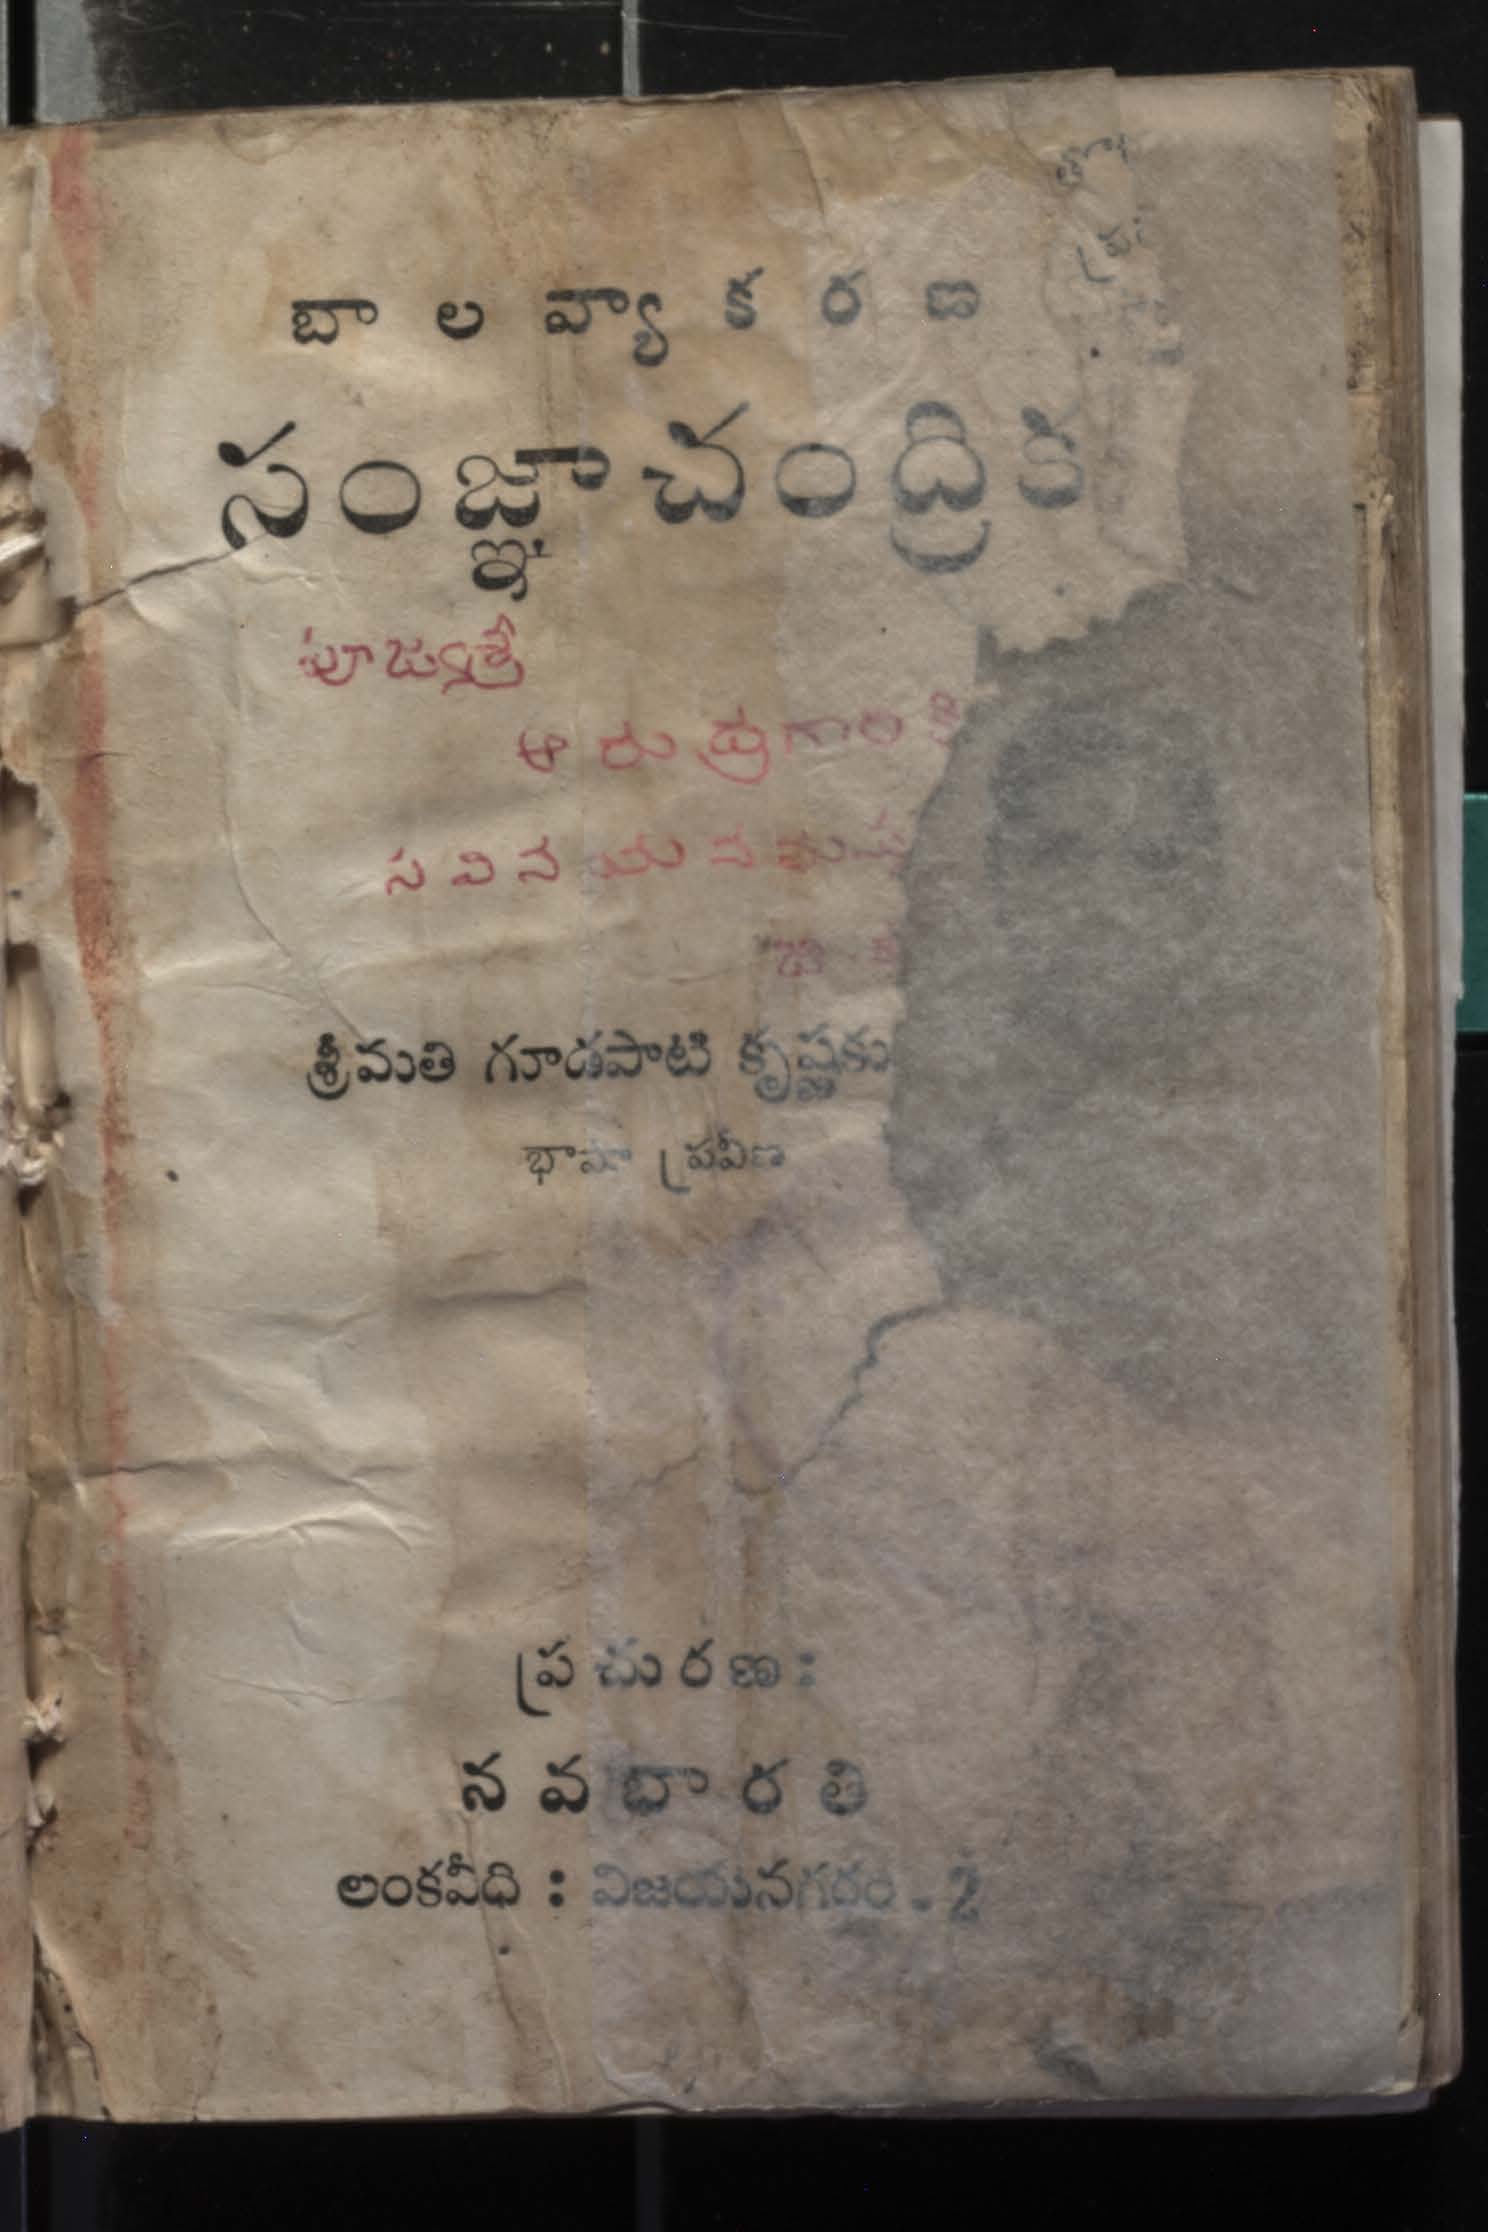 బాలవ్యాకరణ
సంజ్ఞాచంద్రిక
పూజ్యశ్రీ
ఆరుద్రగారికి
సవినయ
శ్రీమతి గూడపాటి
భాషా ప్రవీణ
ప్రచురణ :
నవభారతి
లంకవీధి : విజయనగరం - 2